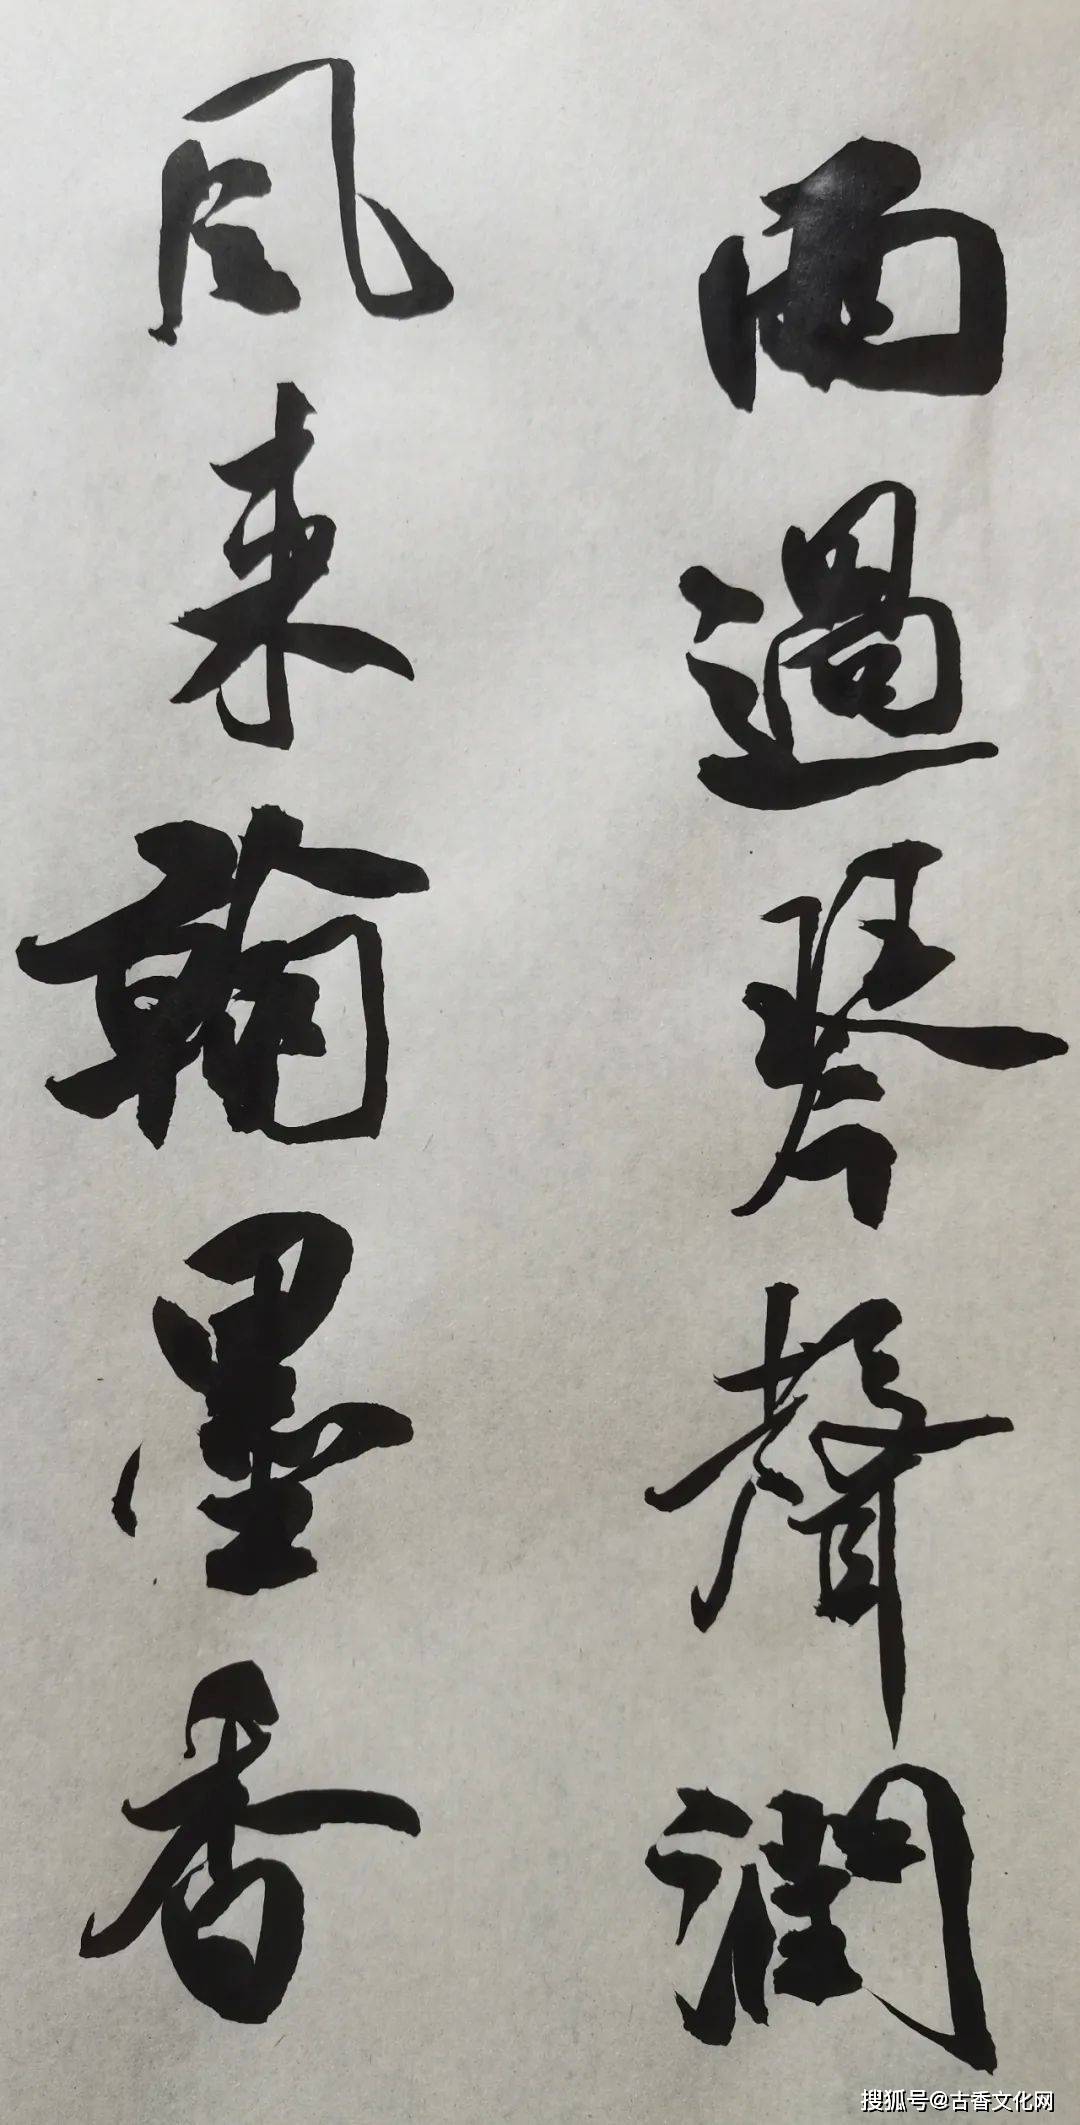 雨過琴聲潤
風来翰墨香
搜狐号@古香文化网